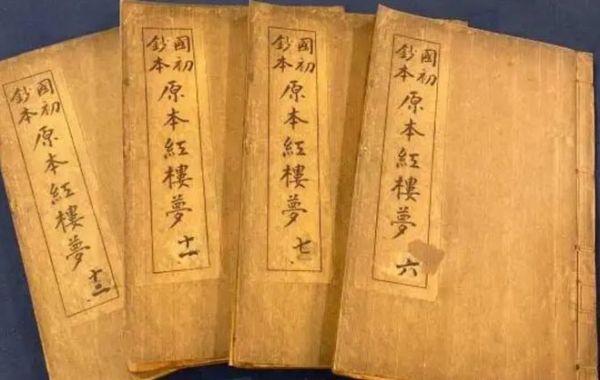 國初
鈔本
原本紅樓夢
十二
國初
鈔本
原本紅樓夢
十一
國初
鈔本
原本紅樓夢
七
國初
鈔本
原本紅樓夢
六